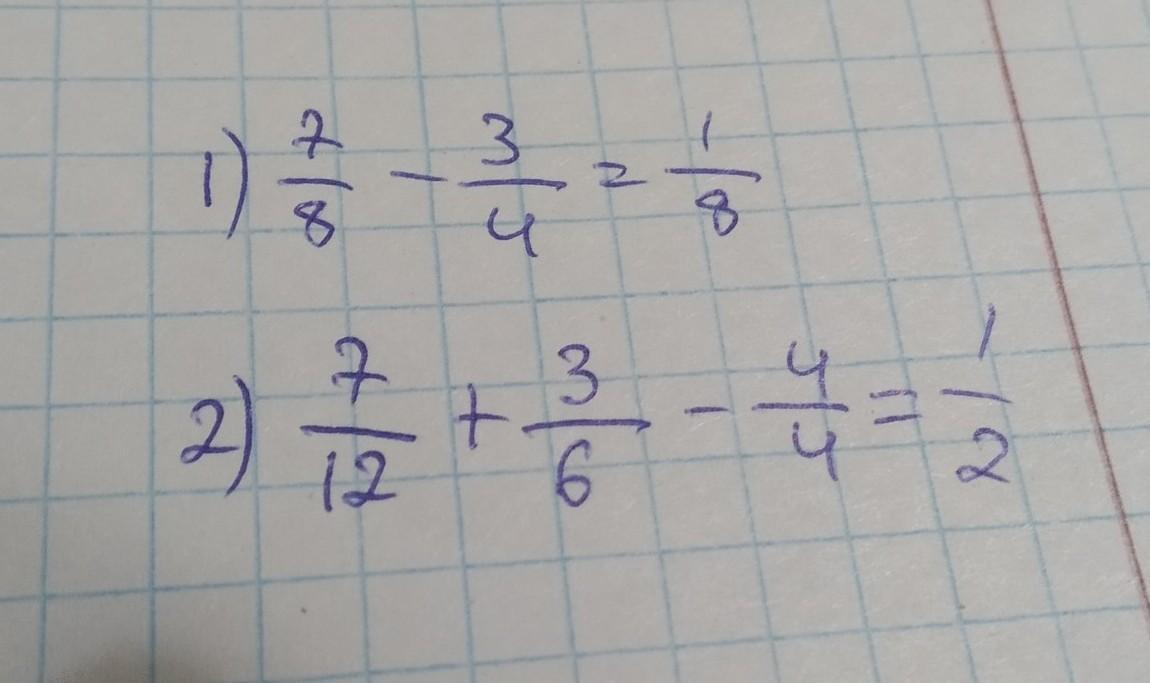 1) 7/8 - 3/4 = 1/8
2) 7/12 + 3/6 - 4/4 = 1/2